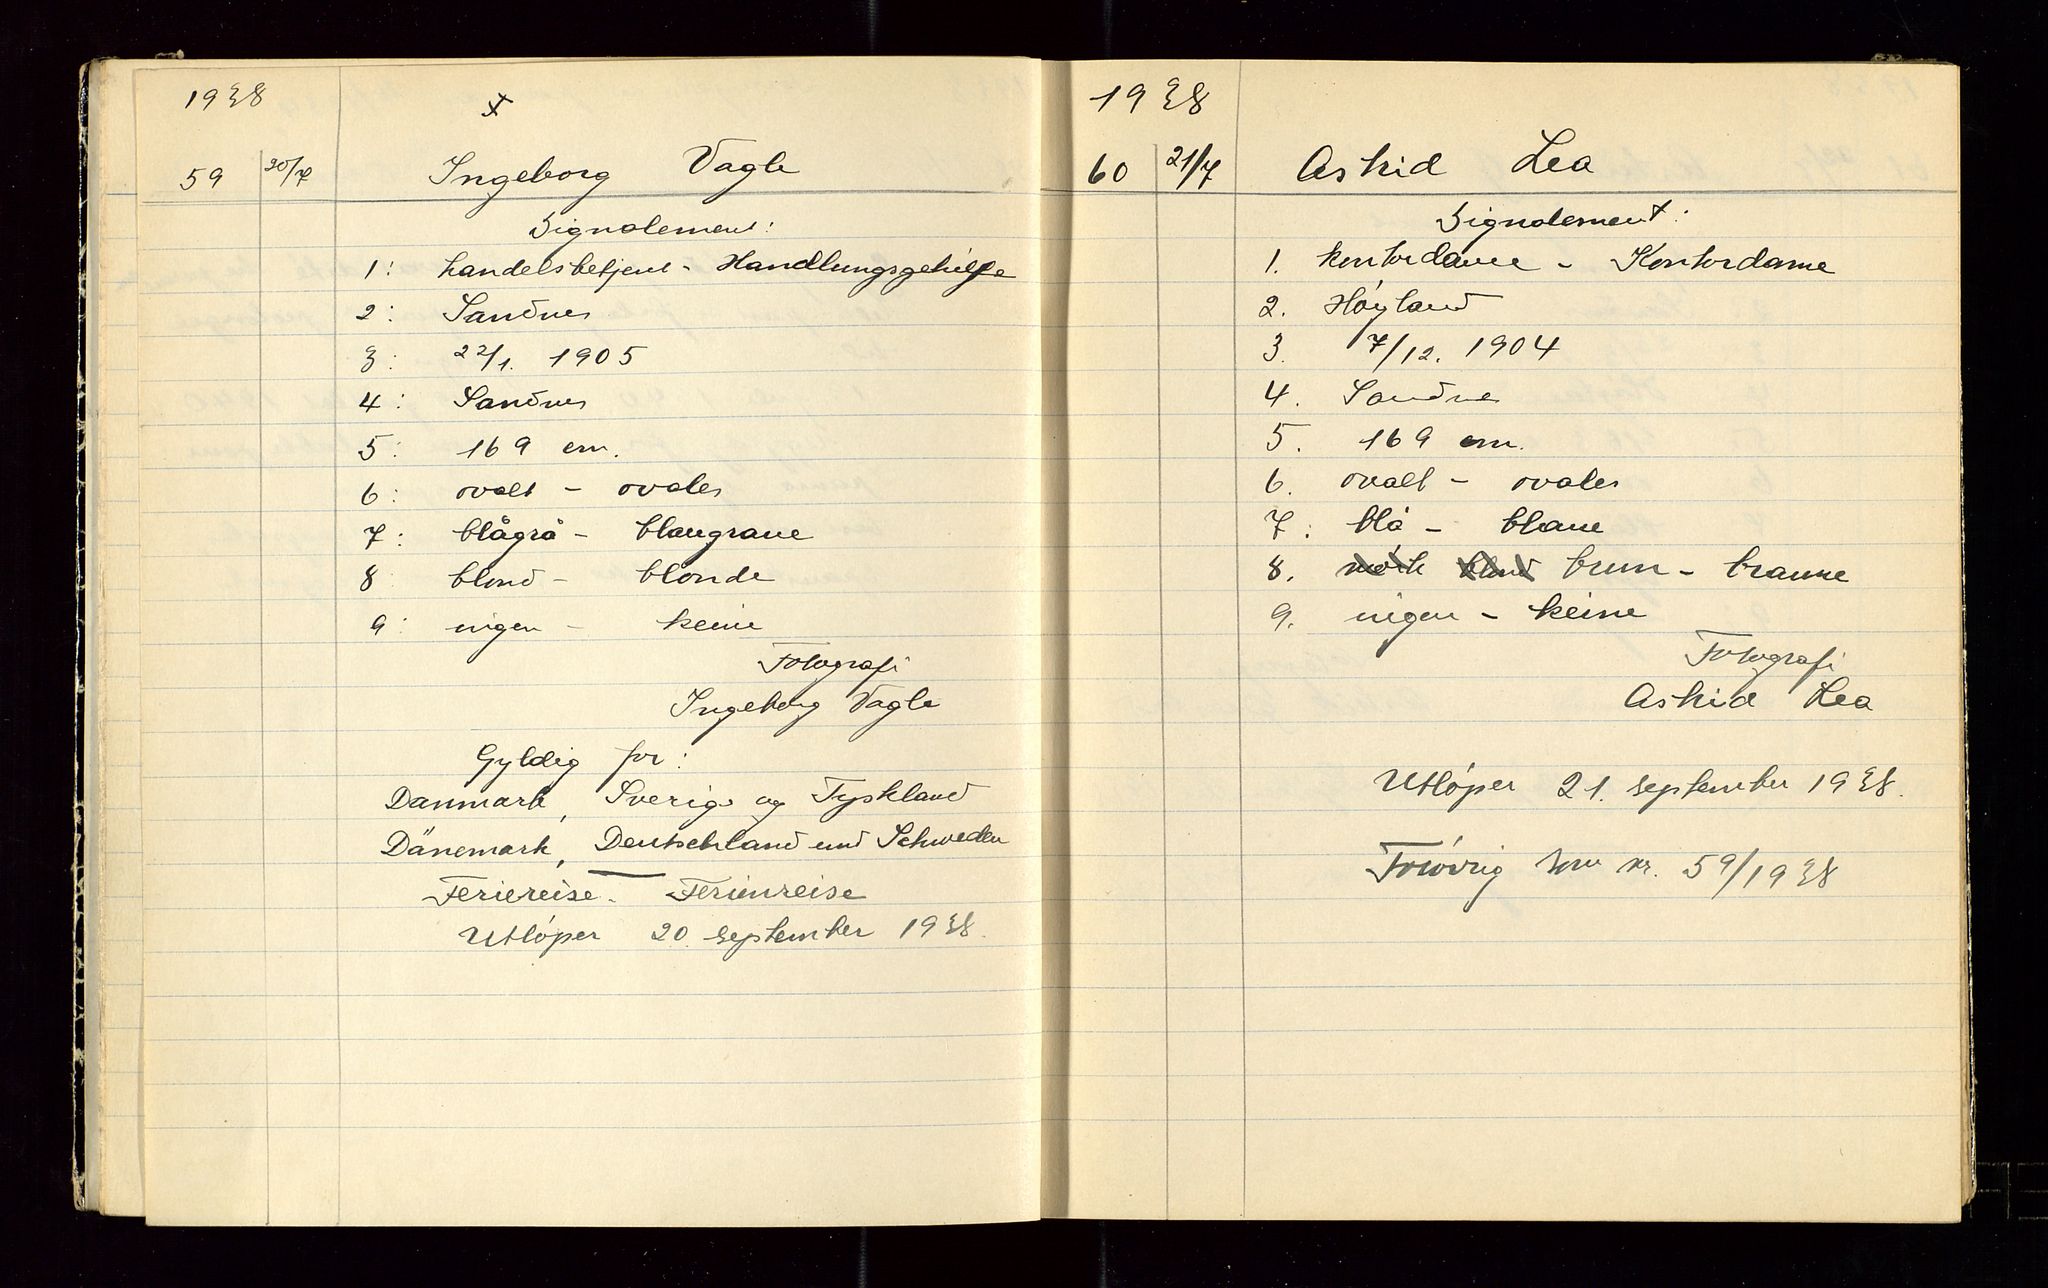 1938
x
59 20/7 Ingeborg Vagle
Signalement:
1: handelsbetjent - Handlungsgehilfe
2: Sandnes
3: 22/1. 1905
4: Sandnes
5: 169 cm.
6: ovalt - ovales
7: blågrå - blaugraue
8 blond - blonde
9: ingen - keine
Fotografi
Ingeborg Vagle
Gyldig for:
Danmark, Sverige og Tyskland
Dänemark, Deutschland und Schweden
Feriereise - Ferienreise
Utløper 20. september 1938.
1938
60 21/7 Astrid Lea
Signalement:
1. kontordame - Kontordame
2. Høyland
3. 7/12. 1904
4. Sandnes
5. 169 cm.
6. ovalt - ovales
7: blå - blaue
8. mørk blond brun - braune
9. ingen - keine
Fotografi
Astrid Lea
Utløper 21. september 1938.
Forøvrig som nr. 59/1938